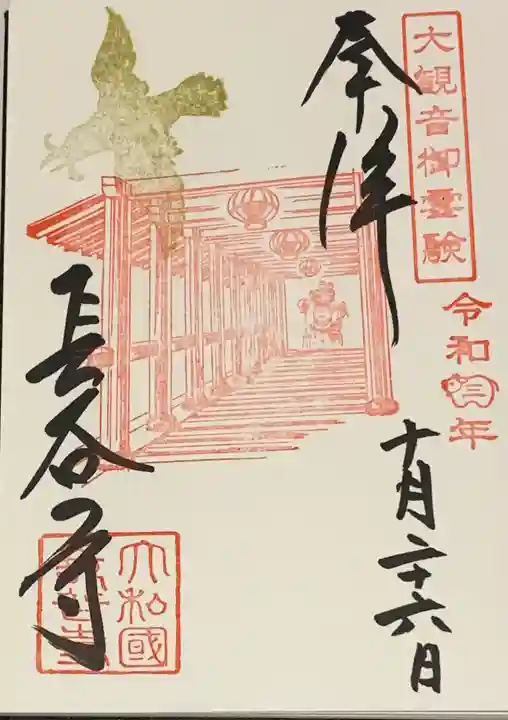 大観音御霊験
令和三年
十月二十六日
奉拝
長谷寺
大和國
長谷寺